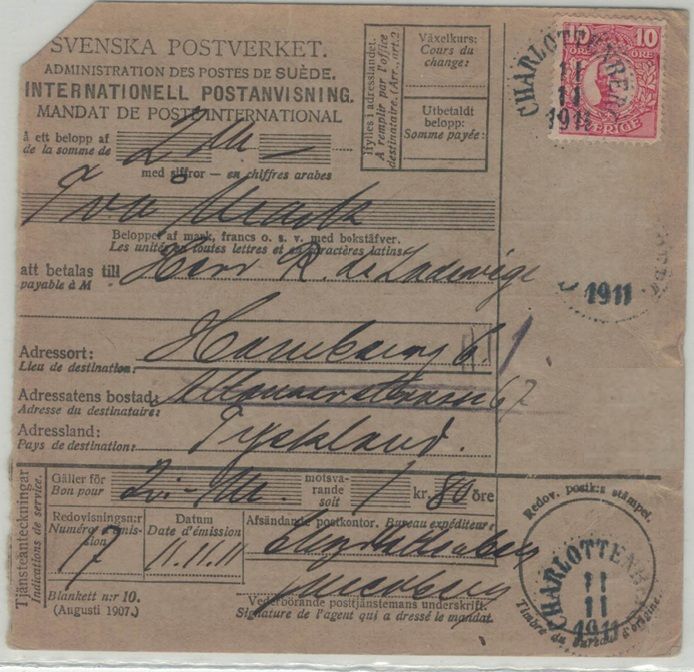 SVENSKA POSTVERKET.
ADMINISTRATION DES POSTES DE SUÈDE.
INTERNATIONELL POSTANVISNING.
MANDAT DE POSTE INTERNATIONAL
å ett belopp af
de la somme de
2 M —
med siffror — en chiffres arabes
Två Mark
Beloppet af mark, francs o. s. v. med bokstäfver.
Les unités en toutes lettres et en caractères latins.
att betalas till Herr R.
payable à M
Adressort: Hamburg 6.
Lieu de destination:
Adressatens bostad: 67
Adresse du destinataire:
Adressland: Tyskland.
Pays de destination:
Ifylles i adresslandet.
A remplir par l'office
destinataire. (Arr., art. 2)
Växelkurs:
Cours du
change:
Utbetaldt
belopp:
Somme payée:
10
SVERIGE
CHARLOTTENBERG
11
11
1911
1911
Tjänsteanteckningar
Indications de service.
Gäller för
Bon pour
motsva-
rande
soit
1 kr. 80 öre
Redovisningsn:r
Numéro d'émis-
sion
17
Datum
Date d'émission
11.11.11
Afsändande postkontor. Bureau expéditeur:
Charlottenberg
Blankett n:r 10.
(Augusti 1907.)
Vederbörande postjänstemans underskrift.
Signature de l'agent qui a dressé le mandat.
Redov. postk:s stämpel.
CHARLOTTENBERG
11
11
1911
Timbre du bureau d'origine.